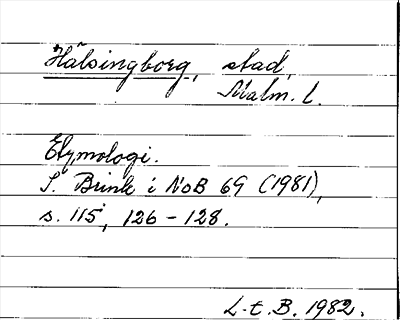 Hälsingborg, stad,
Malm. l.
Etymologi.
S. Brink i NoB 69 (1981),
s. 115, 126-128.
L.t.B. 1982.